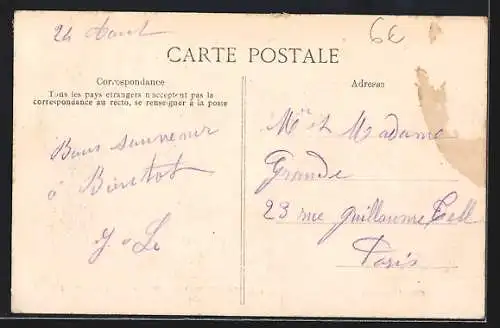 24 Aout
6€
CARTE POSTALE
Correspondance
Tous les pays étrangers n'acceptent pas la
correspondance au recto, se renseigner à la poste
Bons souvenir
à Bientot
Y. Le
Adresse
Mr et Madame
Grande
23 rue Guillaume Tell
Paris